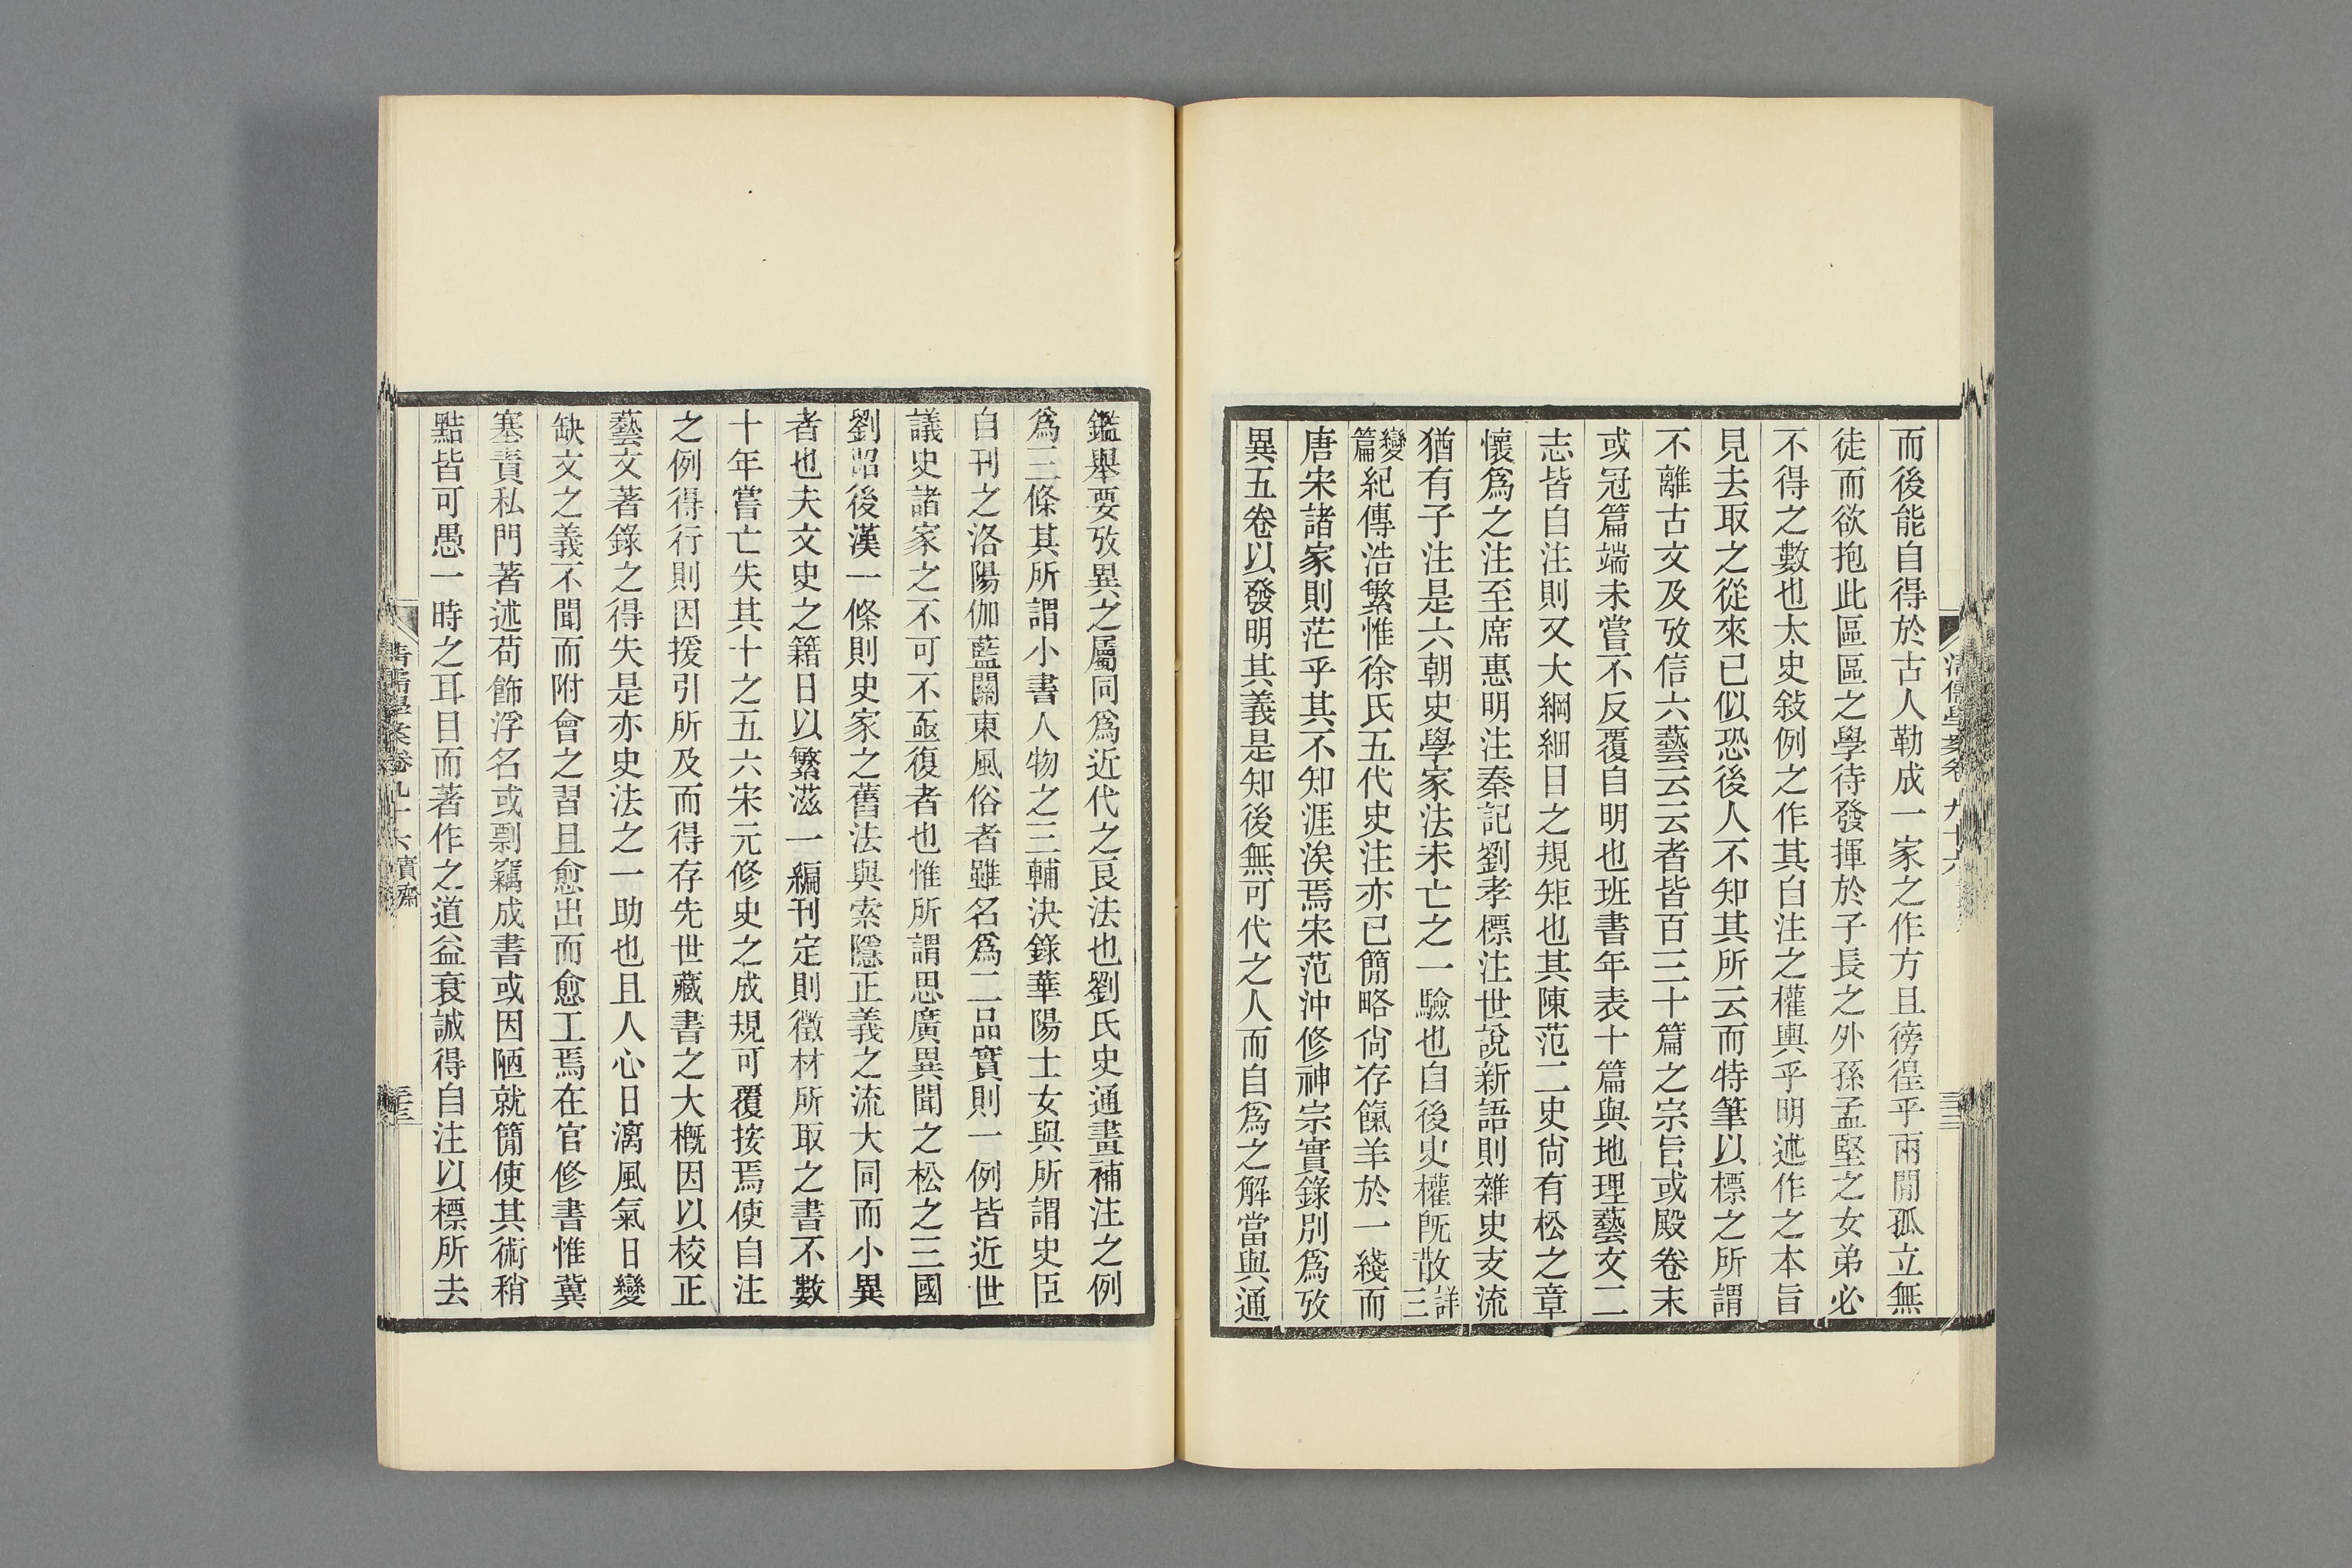 而後能自得於古人勒成一家之作方且徬徨乎兩閒孤立無
徒而欲抱此區區之學待發揮於子長之外孫孟堅之女弟必
不得之數也太史敍例之作其自注之權輿乎明述作之本旨
見去取之從來已似恐後人不知其所云而特筆以標之所謂
不離古文及攷信六藝云云者皆百三十篇之宗旨或殿卷末
或冠篇端未嘗不反覆自明也班書年表十篇與地理藝文二
志皆自注則又大綱細目之規矩也其陳范二史尙有松之章
懷爲之注至席惠明注秦記劉孝標注世說新語則雜史支流
猶有子注是六朝史學家法未亡之一驗也自後史權旣散詳三
變篇紀傳浩繁惟徐氏五代史注亦已簡略尙存餼羊於一綫而
唐宋諸家則茫乎其不知涯涘焉宋范沖修神宗實錄別爲攷
異五卷以發明其義是知後無可代之人而自爲之解當與通
鑑舉要攷異之屬同爲近代之良法也劉氏史通畫補注之例
爲三條其所謂小書人物之三輔決錄華陽士女與所謂史臣
自刊之洛陽伽藍關東風俗者雖名爲二品實則一例皆近世
議史諸家之不可不亟復者也惟所謂思廣異聞之松之三國
劉昭後漢一條則史家之舊法與索隱正義之流大同而小異
者也夫文史之籍日以繁滋一編刊定則徵材所取之書不數
十年嘗亡失其十之五六宋元修史之成規可覆按焉使自注
之例得行則因援引所及而得存先世藏書之大槪因以校正
藝文著錄之得失是亦史法之一助也且人心日漓風氣日變
缺文之義不聞而附會之習且愈出而愈工焉在官修書惟冀
塞責私門著述苟飾浮名或剽竊成書或因陋就簡使其術稍
黠皆可愚一時之耳目而著作之道益衰誠得自注以標所去
清儒學案卷九十六實齋
三十三